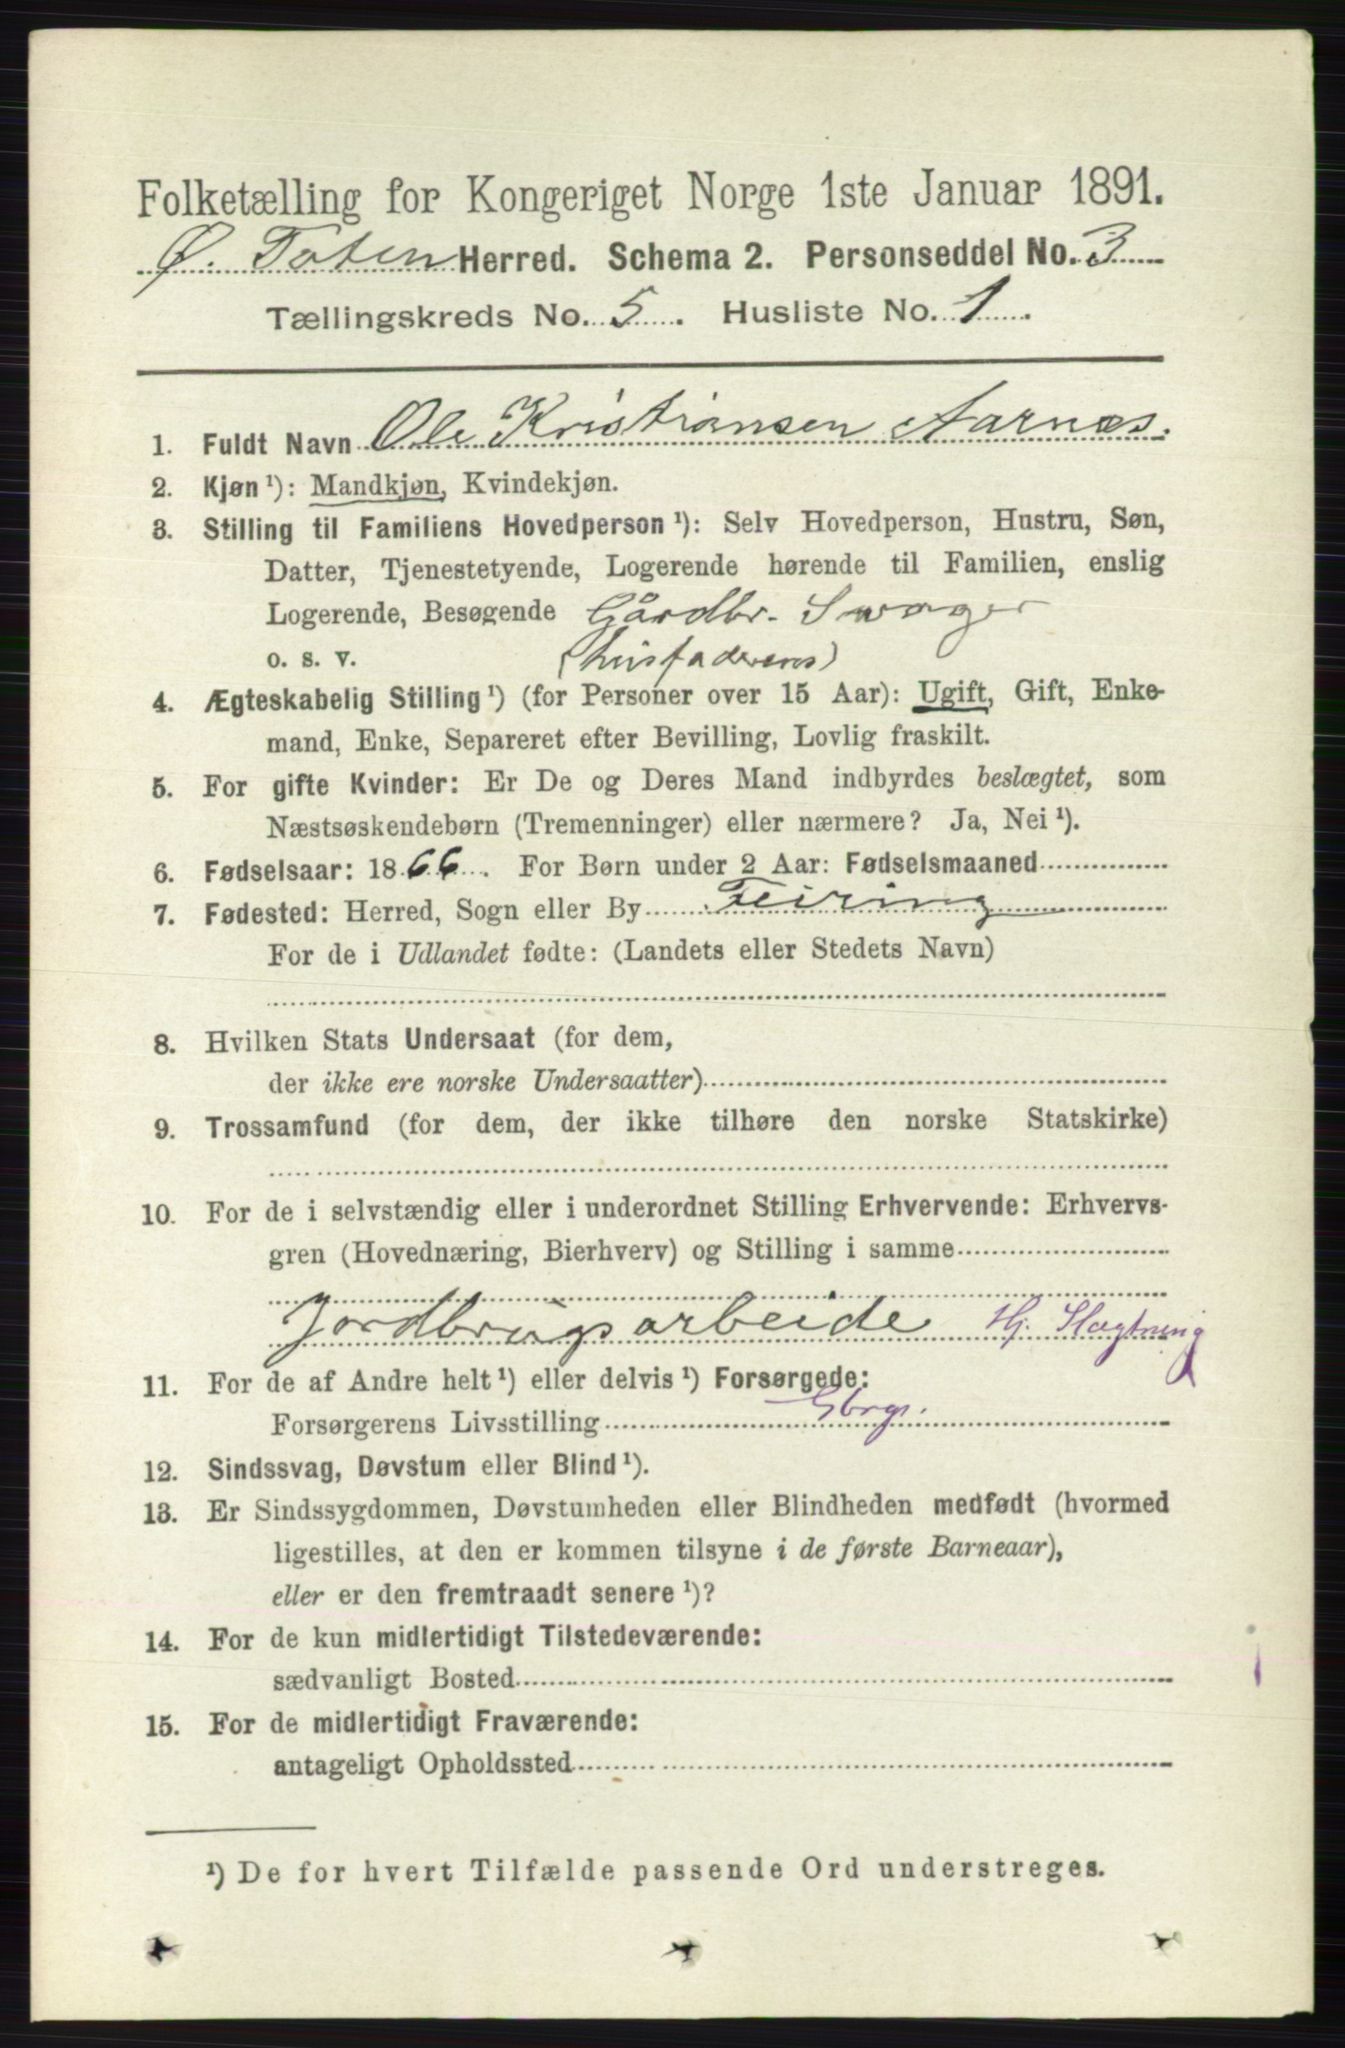 Folketælling for Kongeriget Norge 1ste Januar 1891.
Ø. Toten Herred. Schema 2. Personseddel No. 3
Tællingskreds No. 5. Husliste No. 1.
1. Fuldt Navn Ole Kristiansen Aarnæs.
2. Kjøn ¹): Mandkjøn, Kvindekjøn.
3. Stilling til Familiens Hovedperson ¹): Selv Hovedperson, Hustru, Søn,
Datter, Tjenestetyende, Logerende hørende til Familien, enslig
Logerende, Besøgende Gårdbr. Svoger
o. s. v. (husfaderens)
4. Ægteskabelig Stilling ¹) (for Personer over 15 Aar): Ugift, Gift, Enke-
mand, Enke, Separeret efter Bevilling, Lovlig fraskilt.
5. For gifte Kvinder: Er De og Deres Mand indbyrdes beslægtet, som
Næstsøskendebørn (Tremenninger) eller nærmere? Ja, Nei ¹).
6. Fødselsaar: 1866. For Børn under 2 Aar: Fødselsmaaned
7. Fødested: Herred, Sogn eller By Feiring
For de i Udlandet fødte: (Landets eller Stedets Navn)
8. Hvilken Stats Undersaat (for dem,
der ikke ere norske Undersaatter)
9. Trossamfund (for dem, der ikke tilhøre den norske Statskirke)
10. For de i selvstændig eller i underordnet Stilling Erhvervende: Erhvervs-
gren (Hovednæring, Bierhverv) og Stilling i samme
Jordbrugsarbeide Hj. Slagtning
11. For de af Andre helt ¹) eller delvis ¹) Forsørgede:
Forsørgerens Livsstilling Gbrgr.
12. Sindssvag, Døvstum eller Blind ¹).
13. Er Sindssygdommen, Døvstumheden eller Blindheden medfødt (hvormed
ligestilles, at den er kommen tilsyne i de første Barneaar),
eller er den fremtraadt senere ¹)?
14. For de kun midlertidigt Tilstedeværende:
sædvanligt Bosted
15. For de midlertidigt Fraværende:
antageligt Opholdssted
¹) De for hvert Tilfælde passende Ord understreges.